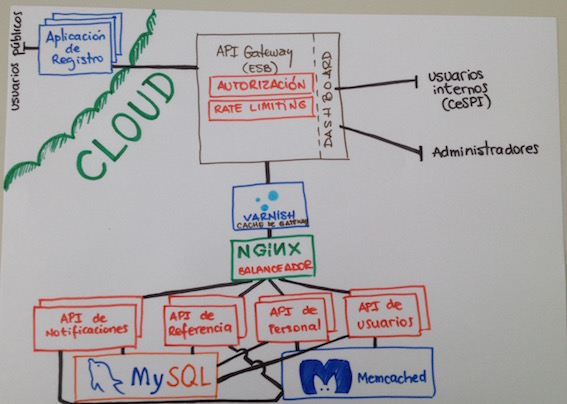 usuarios públicos
Aplicación
de
Registro
CLOUD
API Gateway
(ESB)
AUTORIZACIÓN
RATE LIMITING
DASHBOARD
usuarios
internos
(CeSPI)
Administradores
VARNISH
CACHE DE GATEWAY
NGiNX
BALANCEADOR
API de
Notificaciones
API de
Referencia
API de
Personal
API de
usuarios
MySQL
Memcached